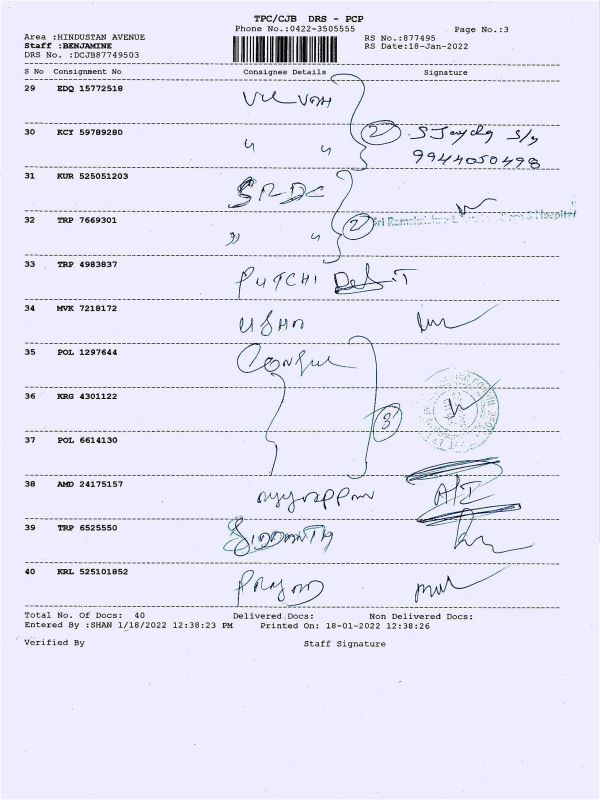 TPC/CJB DRS - PCP
Phone No.:0422-3505555 Page No.:3
Area :HINDUSTAN AVENUE RS No.:877495
Staff :BENJAMINE RS Date:18-Jan-2022
DRS No. :DCJB87749503
S No Consignment No Consignee Details Signature
29 EDQ 15772518
30 KCY 59789280 " " 2
9944050498
31 KUR 525051203
32 TRP 7669301 " " 2 Hospital
33 TRP 4983837
34 MVK 7218172
35 POL 1297644
36 KRG 4301122 3
37 POL 6614130
38 AMD 24175157
39 TRP 6525550 SIDDANTH
40 KRL 525101852
Total No. Of Docs: 40 Delivered Docs: Non Delivered Docs:
Entered By :SHAN 1/18/2022 12:38:23 PM Printed On: 18-01-2022 12:38:26
Verified By Staff Signature